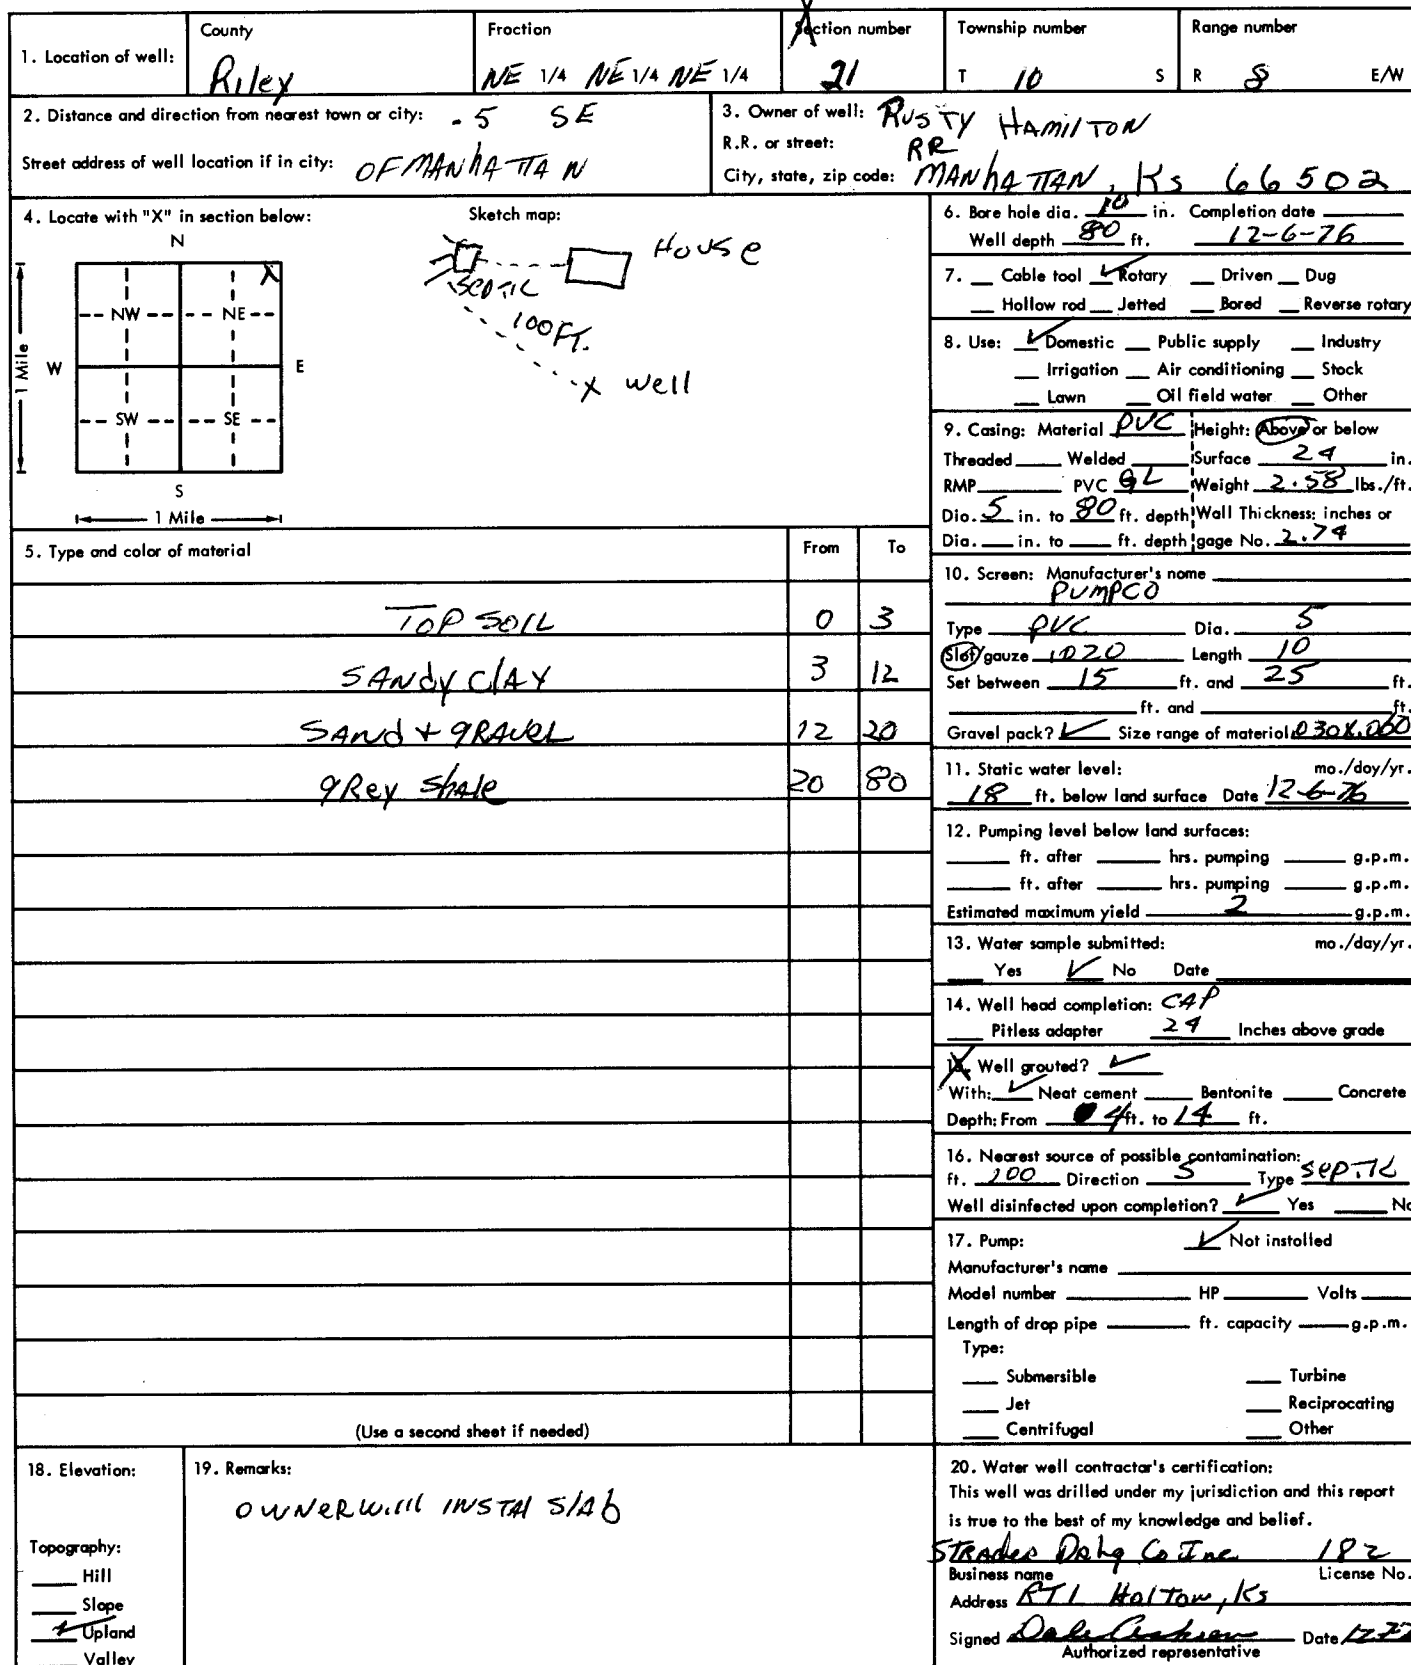 County Fraction Section number Township number Range number
1. Location of well: Riley NE 1/4 NE 1/4 NE 1/4 21 T 10 S R 8 E/W
2. Distance and direction from nearest town or city: .5 SE
Street address of well location if in city: OF MANHATTAN
3. Owner of well: RUSTY HAMILTON
R.R. or street: RR
City, state, zip code: MANHATTAN, Ks 66502
4. Locate with "X" in section below:
Sketch map:
N
X
NW NE
W E
SW SE
S
1 Mile
1 Mile
House
SEPTIC
100 FT.
X well
5. Type and color of material From To
TOP SOIL 0 3
SANdy ClAY 3 12
SANd + gRAVEL 12 20
gRey Shale 20 80
(Use a second sheet if needed)
6. Bore hole dia. 10 in. Completion date
Well depth 80 ft. 12-6-76
7. Cable tool ✓ Rotary Driven Dug
Hollow rod Jetted Bored Reverse rotary
8. Use: ✓ Domestic Public supply Industry
Irrigation Air conditioning Stock
Lawn Oil field water Other
9. Casing: Material PVC Height: Above or below
Threaded Welded Surface 24 in.
RMP PVC GL Weight 2.58 lbs./ft.
Dia. 5 in. to 80 ft. depth Wall Thickness: inches or
Dia. in. to ft. depth gage No. 2.74
10. Screen: Manufacturer's name
PUMPCO
Type PVC Dia. 5
Slot/gauze Length 10
Set between 15 ft. and 25 ft.
ft. and ft.
Gravel pack? ✓ Size range of material .030X.060
11. Static water level: mo./day/yr.
18 ft. below land surface Date 12-6-76
12. Pumping level below land surfaces:
ft. after hrs. pumping g.p.m.
ft. after hrs. pumping g.p.m.
Estimated maximum yield 2 g.p.m.
13. Water sample submitted: mo./day/yr.
Yes ✓ No Date
14. Well head completion: CAP
Pitless adapter 24 Inches above grade
15. Well grouted? ✓
With: ✓ Neat cement Bentonite Concrete
Depth: From 4 ft. to 14 ft.
16. Nearest source of possible contamination:
ft. 100 Direction S Type SepTic
Well disinfected upon completion? ✓ Yes No
17. Pump: ✓ Not installed
Manufacturer's name
Model number HP Volts
Length of drop pipe ft. capacity g.p.m.
Type:
Submersible Turbine
Jet Reciprocating
Centrifugal Other
18. Elevation:
Topography:
Hill
Slope
✓ Upland
Valley
19. Remarks:
OWNER Will INSTAl SlAb
20. Water well contractor's certification:
This well was drilled under my jurisdiction and this report
is true to the best of my knowledge and belief.
Co Inc 182
Business name License No.
Address RT 1 Holton, Ks
Signed Dale Date
Authorized representative